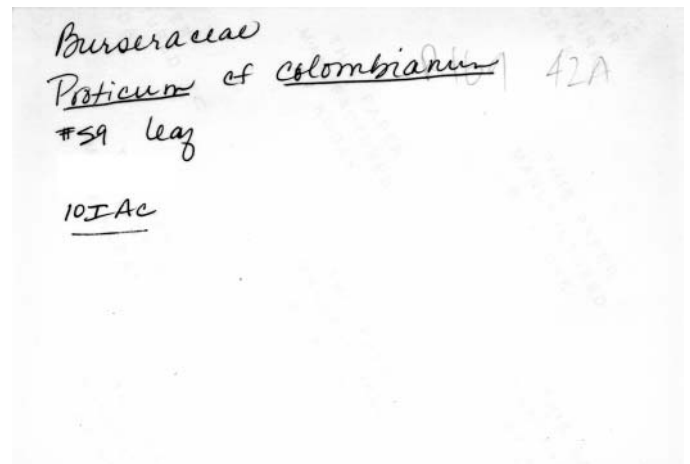 Burseraceae
Proticum cf colombianum 42A
#59 leaf
10IAC